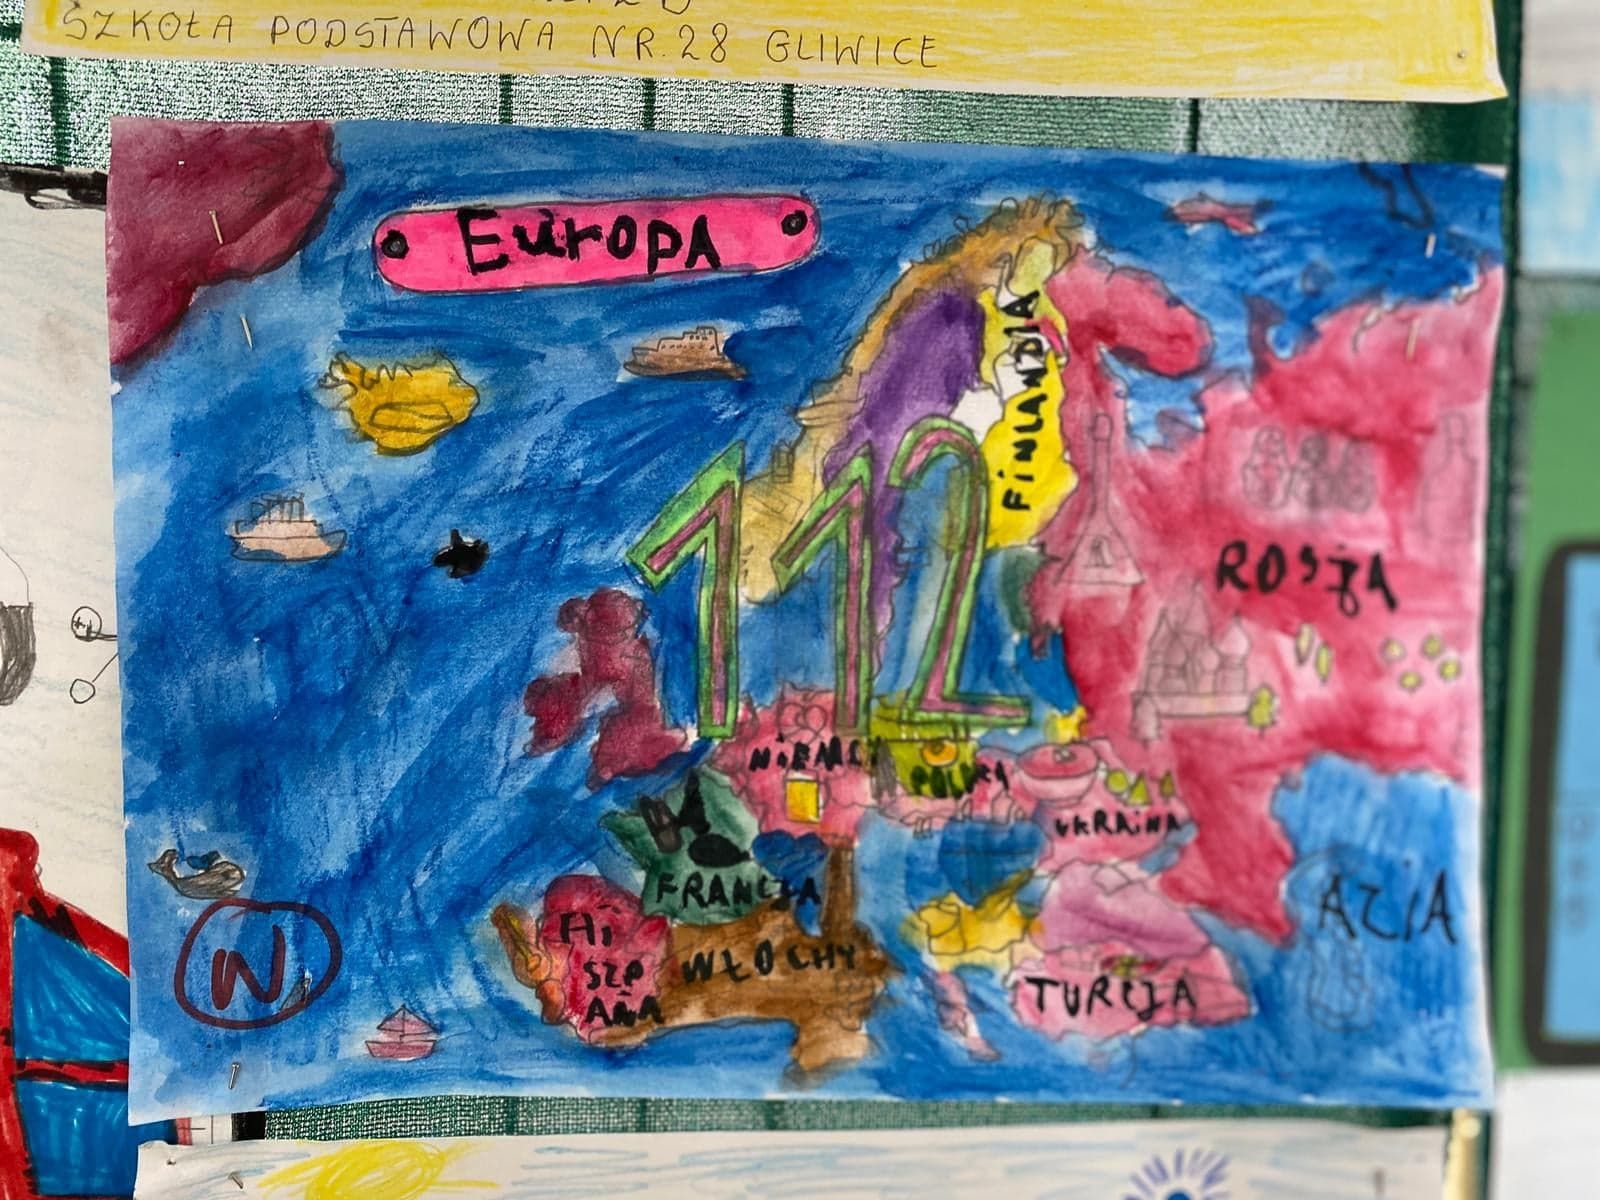 SZKOŁA PODSTAWOWA NR.28 GLIWICE
EuropA
FINLANDIA
112
ROSJA
NiEMCY
POLSKA
UKRAiNA
FRANCJA
AZIA
Hi
SZP
AÑA
WŁOCHY
TURCJA
W